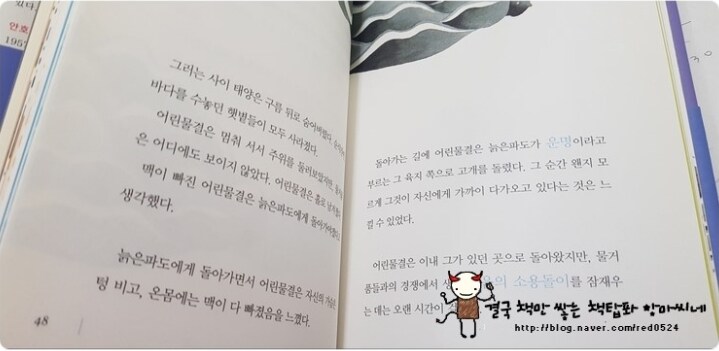 안호
195
그러는 사이 태양은 구름 뒤로 숨어버렸다.
바다를 수놓던 햇볕들이 모두 사라졌다.
어린물결은 멈춰 서서 주위를 둘러보았지만,
은 어디에도 보이지 않았다. 어린물결은 홀로
맥이 빠진 어린물결은 늙은파도에게 돌아가야겠다고
생각했다.
늙은파도에게 돌아가면서 어린물결은 자신의
텅 비고, 온몸에는 맥이 다 빠졌음을 느꼈다.
48
돌아가는 길에 어린물결은 늙은파도가 운명이라고
부르는 그 육지 쪽으로 고개를 돌렸다. 그 순간 왠지 모
르게 그것이 자신에게 가까이 다가오고 있다는 것은 느
낄 수 있었다.
어린물결은 이내 그가 있던 곳으로 돌아왔지만, 물거
품들과의 경쟁에서 생 의 소용돌이를 잠재우
는 데는 오랜 시간이
결국 책만 쌓는 책탑파 항마씨네
http://blog.naver.com/red0524